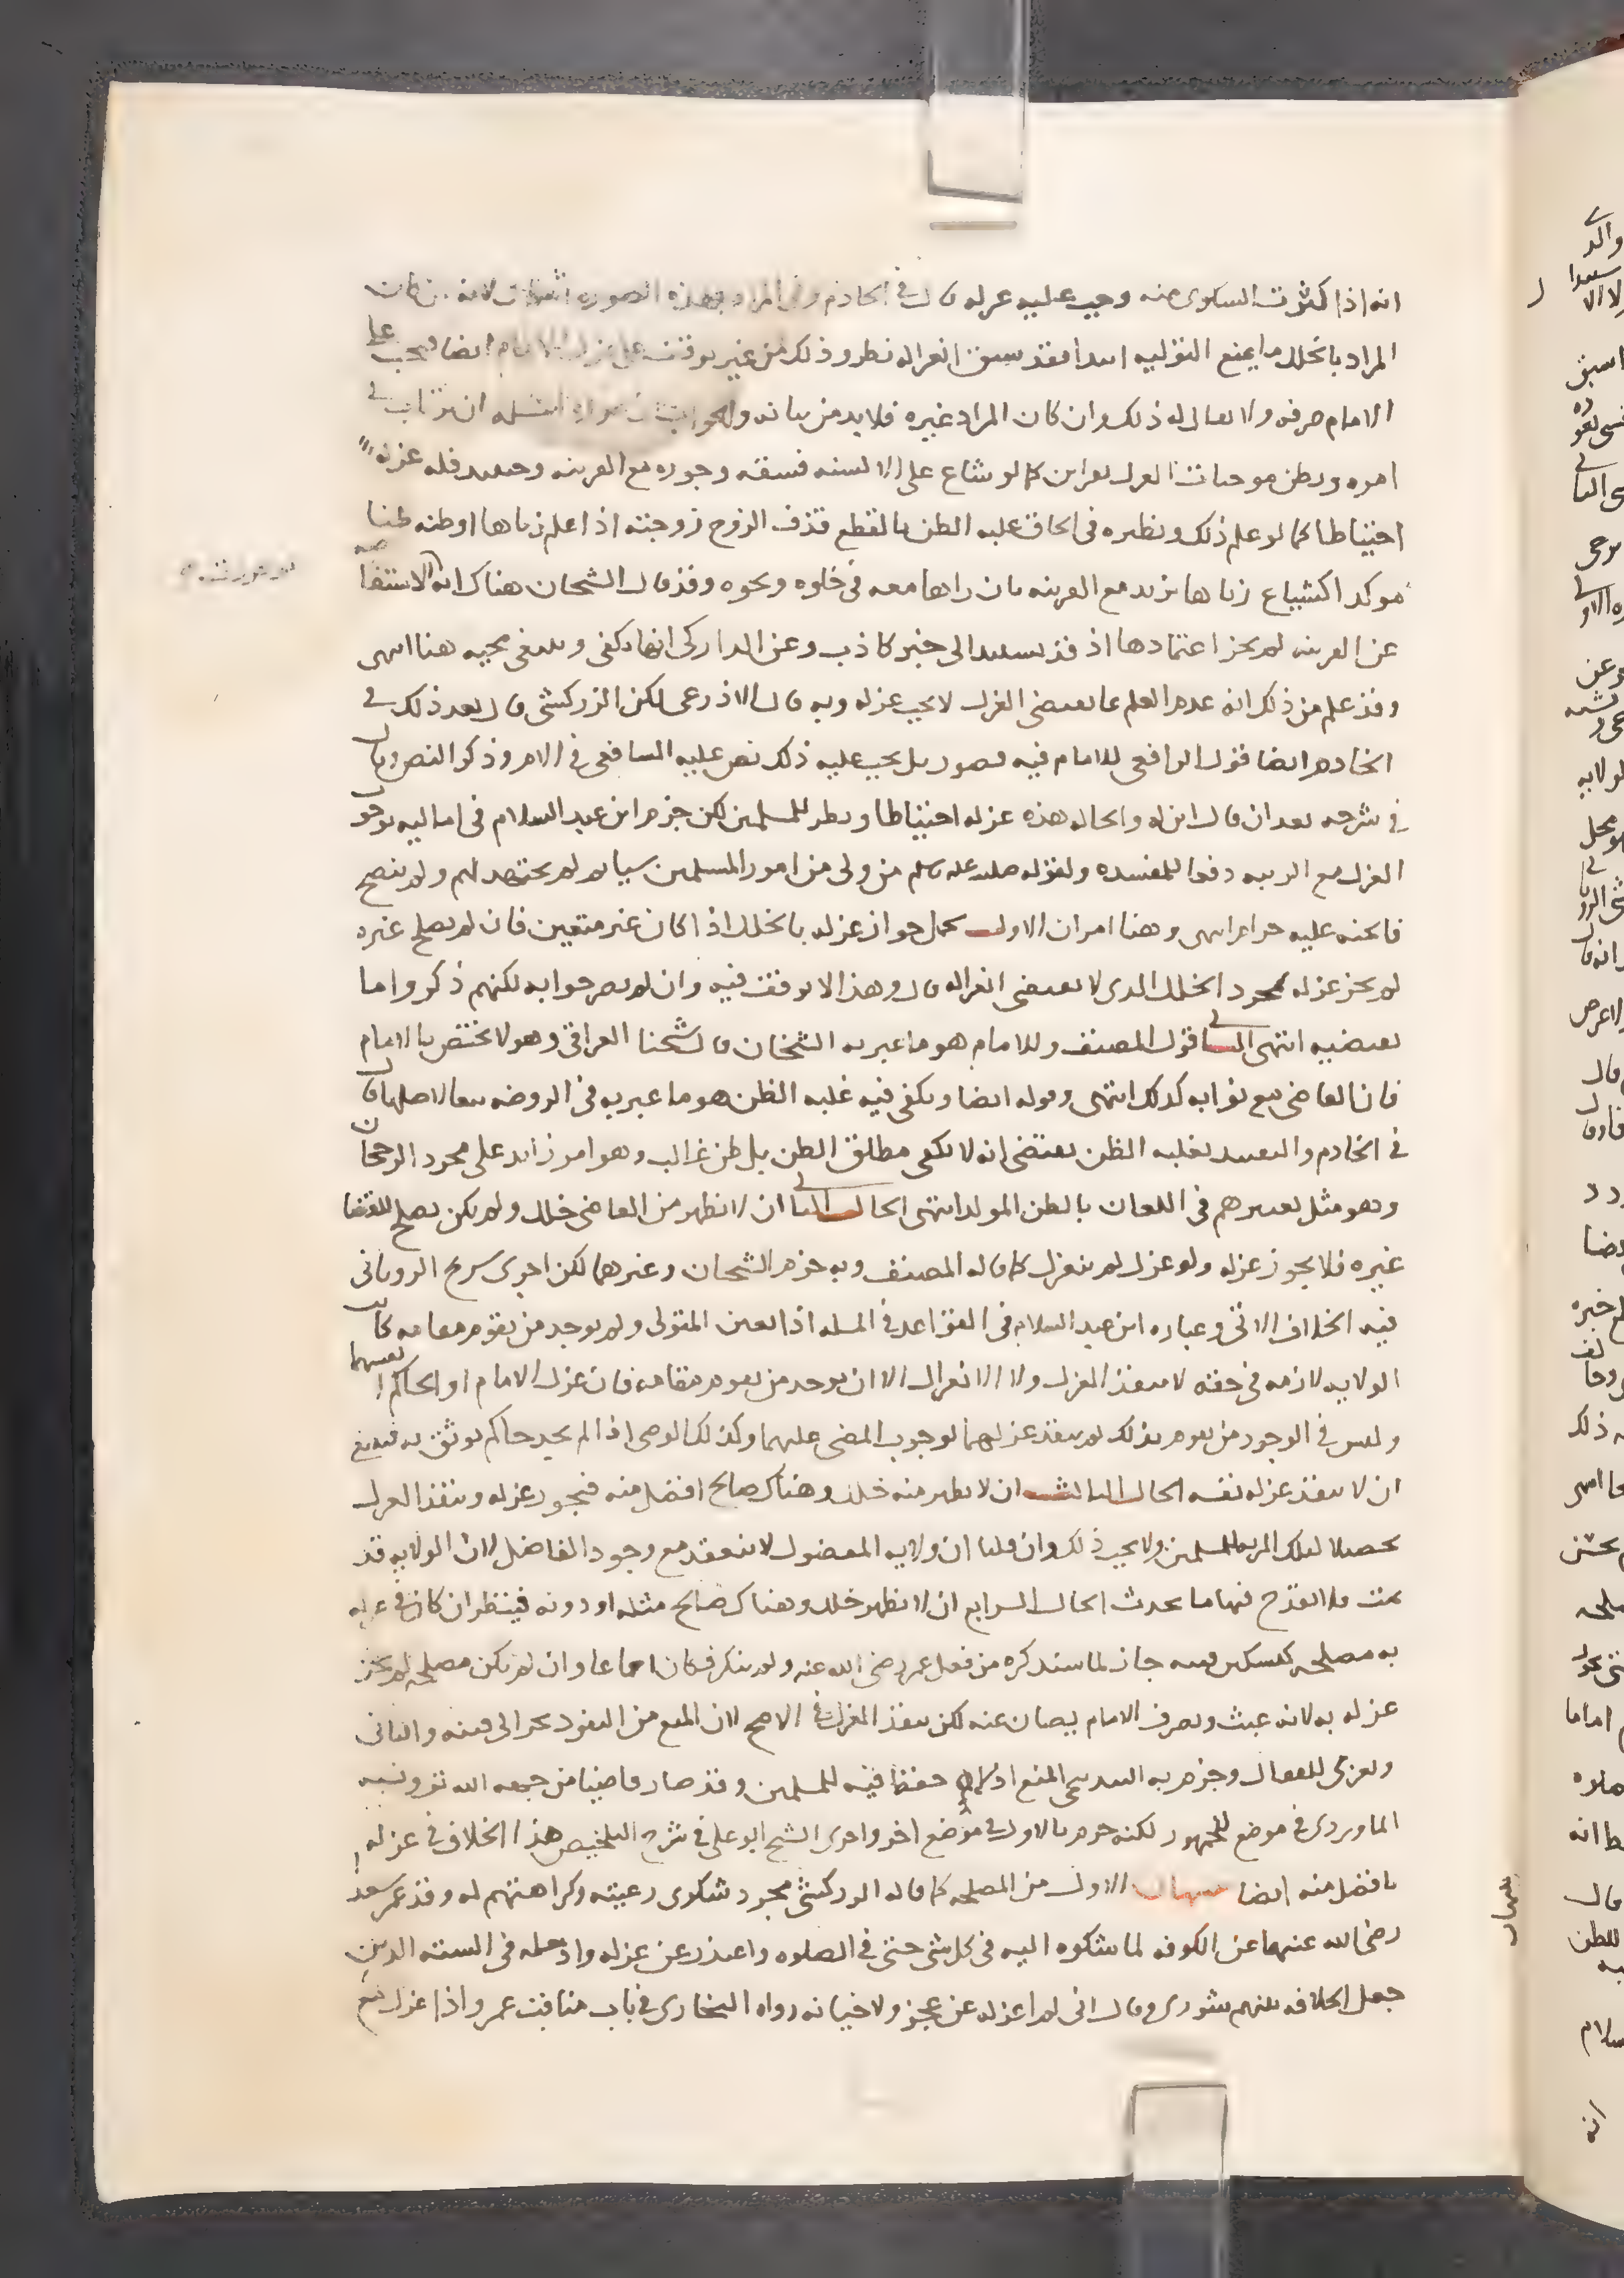 انه اذا كثرت الشكوى منه وجب عليه عزله قال في الخادم وفي بهذه الصوره لانه ان كان
المراد بالخلل ما يمنع التوليه ابتدا فقد سبق انعزاله بطروذلك من غير توقف على عزل الامام ايضا ويجب على
الامام صرفه ولا تعالى له ذلك وان كان المراد غيره فلا بد من بيانه والجواب المسله ان يرتاب في
امره ويظن موجبات العزل بقراين كما لو شاع على الالسنه فسقه وجوره مع القرينه وحينيد فله عزله
احتياطا كما لو علم ذلك ونظيره في الحاق غلبه الظن بالقطع قذف الزوج زوجته اذا علم زناها او ظنه ظنا
موكدا كشياع زناها بزيد مع القرينه بان راها معه في خلوه ونحوه وقد قال الشيخان هناك ان الاستفاضه
عن القرينه لم يجز اعتمادها اذ قد يستند الى خبر كاذب وعن الداركى انها تكفى وينبغى مجيه هنا انتهى
وقد علم من ذلك انه عدم العلم بما يقتضى العزل لا يجب عزله وبه قال الاذرعى لكن الزركشى قال بعد ذلك في
الخادم ايضا قول الرافعى للامام فيه قصور بل يجب عليه ذلك نص عليه الشافعى في الام وذكر النص وقال
في شرحه بعد ان قال ان له والحاله هذه عزله احتياطا ونظر للمسلمين لكن جزم ابن عبد السلام في اماليه بوجوب
العزل مع الريبه دفعا للمفسده ولقوله صلى الله عليه وسلم من ولى من امور المسلمين شيا ثم لم يجتهد لهم ولم ينصح
فالجنه عليه حرام انتهى وهنا امران الاول محل جواز عزله بالخلل اذا كان غير متعين فان لم يصلح غيره
لم يجز عزله بمجرد الخلل الذى لا يقتضى انعزاله قال وهذا لا توقف فيه وان لم يصرحوا به لكنهم ذكروا ما
يقتضيه انتهى الثانى قول المصنف وللامام هو ما عبر به الشيخان قال شيخنا العراقى وهو لا يختص بالامام
فان القاضى مع نوابه كذلك انتهى وقوله ايضا ويكفى فيه غلبه الظن هو ما عبر به في الروضه تبعا لاصلها قال
في الخادم والتقييد بغلبه الظن يقتضى انه لا يكفى مطلق الظن بل ظن غالب وهو امر زايد على مجرد الرجحان
وهو مثل تعبيرهم في اللعان بالظن الموكد انتهى الحال الثانى ان لا يظهر من القاضى خلل ولم يكن يصلح للقضا
غيره فلا يجوز عزله ولو عزل لم ينعزل كما قاله المصنف وبه جزم الشيخان وغيرهما لكن اجرى شريح الرويانى
فيه الخلاف الاتى وعباره ابن عبد السلام في القواعد في المسله اذا تعين المتولى ولم يوجد من يقوم مقامه كانت
الولايه لازمه في حقه لا ينفذ العزل ولا الانعزال الا ان يوجد من يقوم مقامه فان عزل الامام او الحاكم انفسهما
وليس في الوجود من يقوم بذلك لم ينفذ عزلهما لوجوب المضى عليهما وكذلك الوصى اذا لم يجد حاكم يوثق به فينبغى
ان لا ينفذ عزله نفسه الحال الثالث ان لا يظهر منه خلل وهناك صالح افضل منه فيجوز عزله وينفذ العزل
تحصيلا لتلك المزيه للمسلمين ولا يجب ذلك وان قلنا ان ولايه المفضول لا تنعقد مع وجود الفاضل لان الولايه قد
تمت فلا يقدح فيها ما يحدث الحال الرابع ان لا يظهر خلل وهناك صالح مثله او دونه فينظر ان كان في عزله
به مصلحه كتسكين فتنه جاز لما سنذكره من فعل عمر رضى الله عنه ولم ينكر فكان اجماعا وان لم تكن مصلحه لم يجز
عزله به لانه عبث وتصرف الامام يصان عنه لكن ينفذ العزل في الاصح لان المنع من النفوذ يجر الى فتنه والثانى
ويعزى للقفال وجزم به البندنيجى المنع اذ لا حفظ فيه للمسلمين وقد صار قاضيا من جهه الله تعالى ونسبه
الماوردى في موضع للجمهور لكنه جزم بالاول في موضع اخر واجرى الشيخ ابو على في شرح التلخيص هذا الخلاف في عزله
بافضل منه ايضا تنبيهان الاول من المصلحه كما قاله الزركشى مجرد شكوى رعيته وكراهتهم له وقد عزل عمر سعدا
رضى الله عنهما عن الكوفه لما شكوه اليه في كل شى حتى في الصلوه واعتذر عن عزله وادخله في السته الذين
جعل الخلافه بينهم شورى وقال انى لم اعزله عن عجز ولا خيانه رواه البخارى في باب مناقب عمر واذا عزل مع
تنبيهان